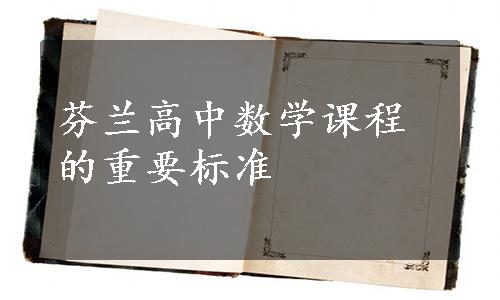 芬兰高中数学课程
的重要标准